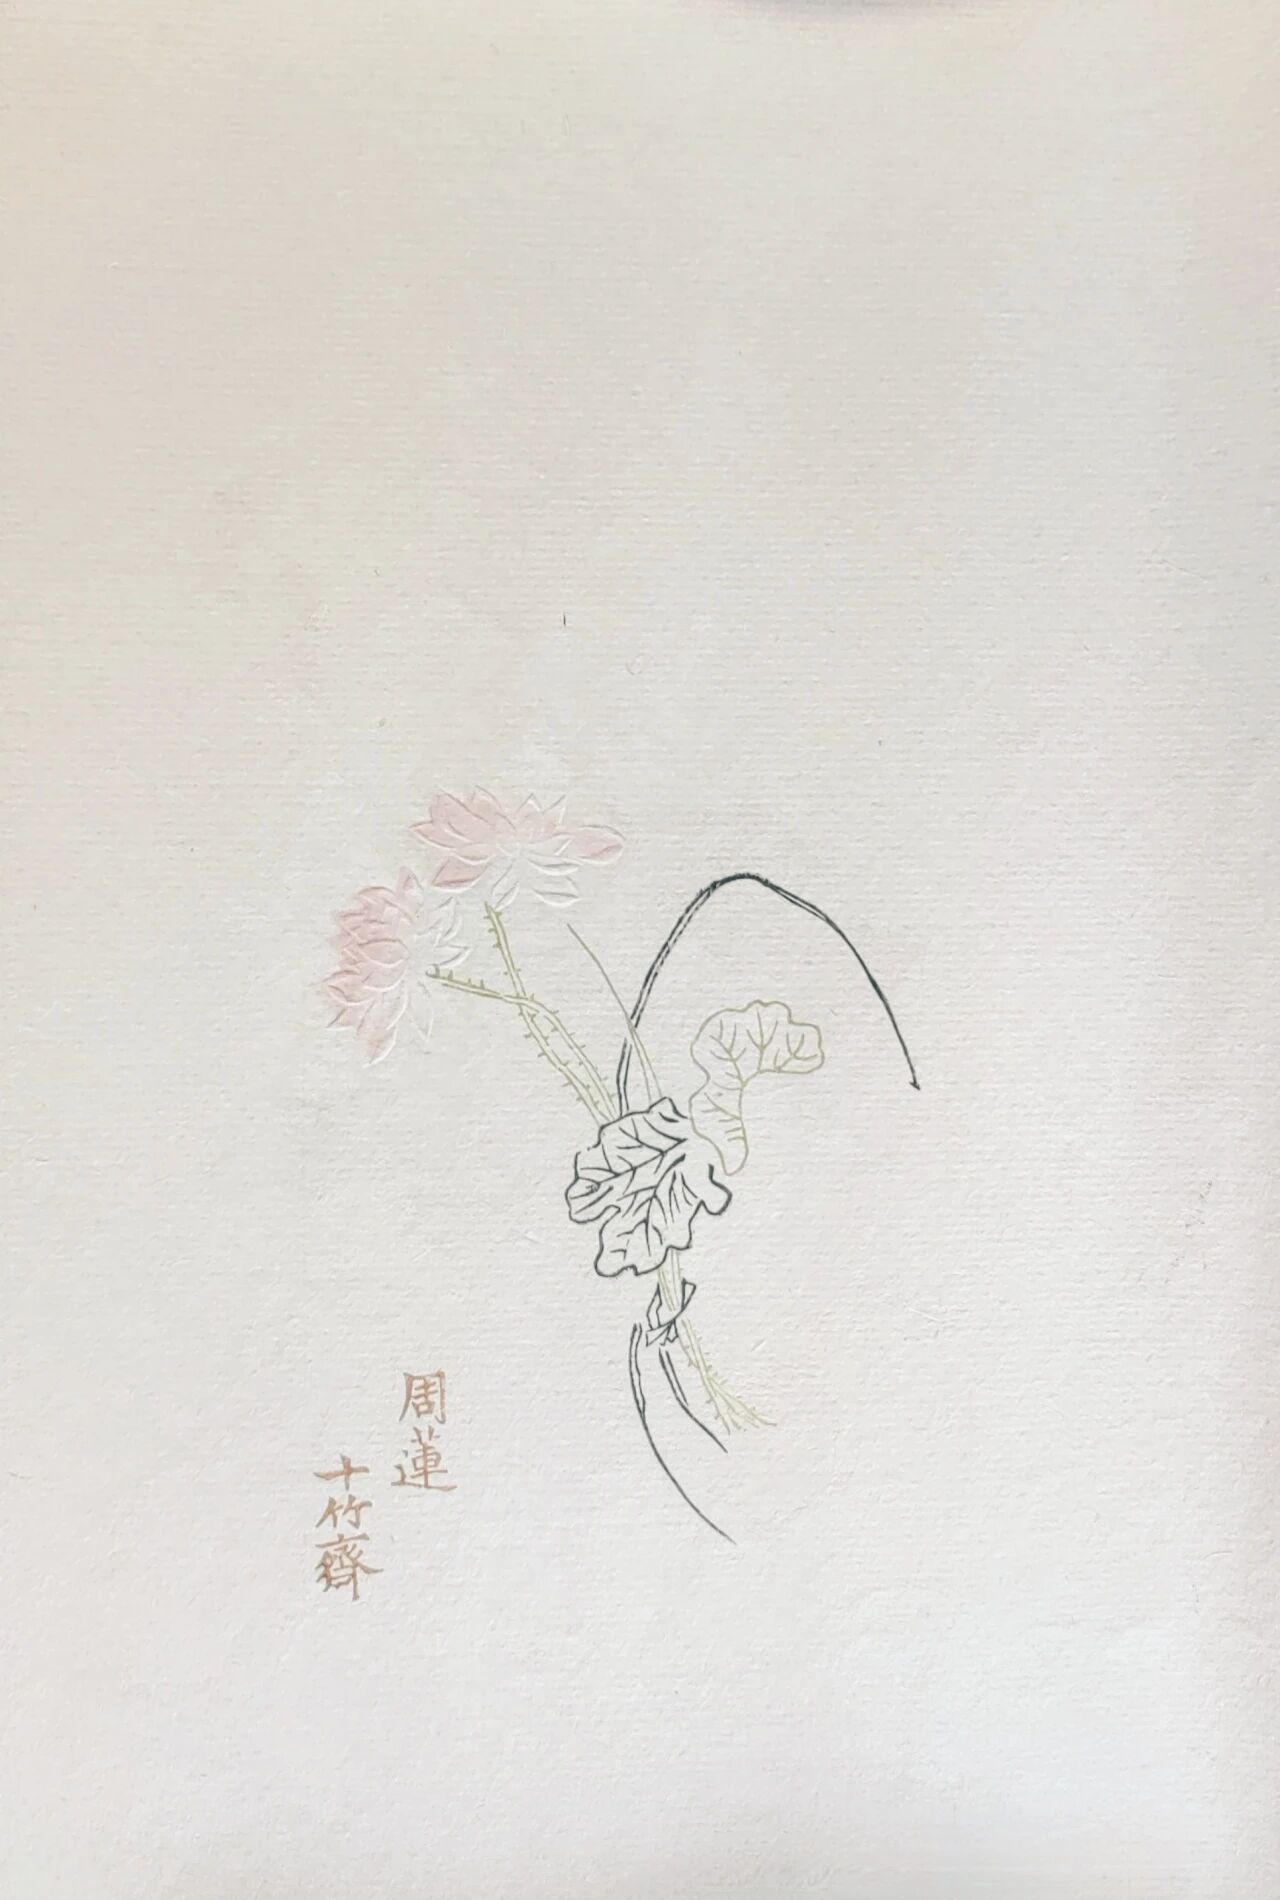 周蓮
十竹齋